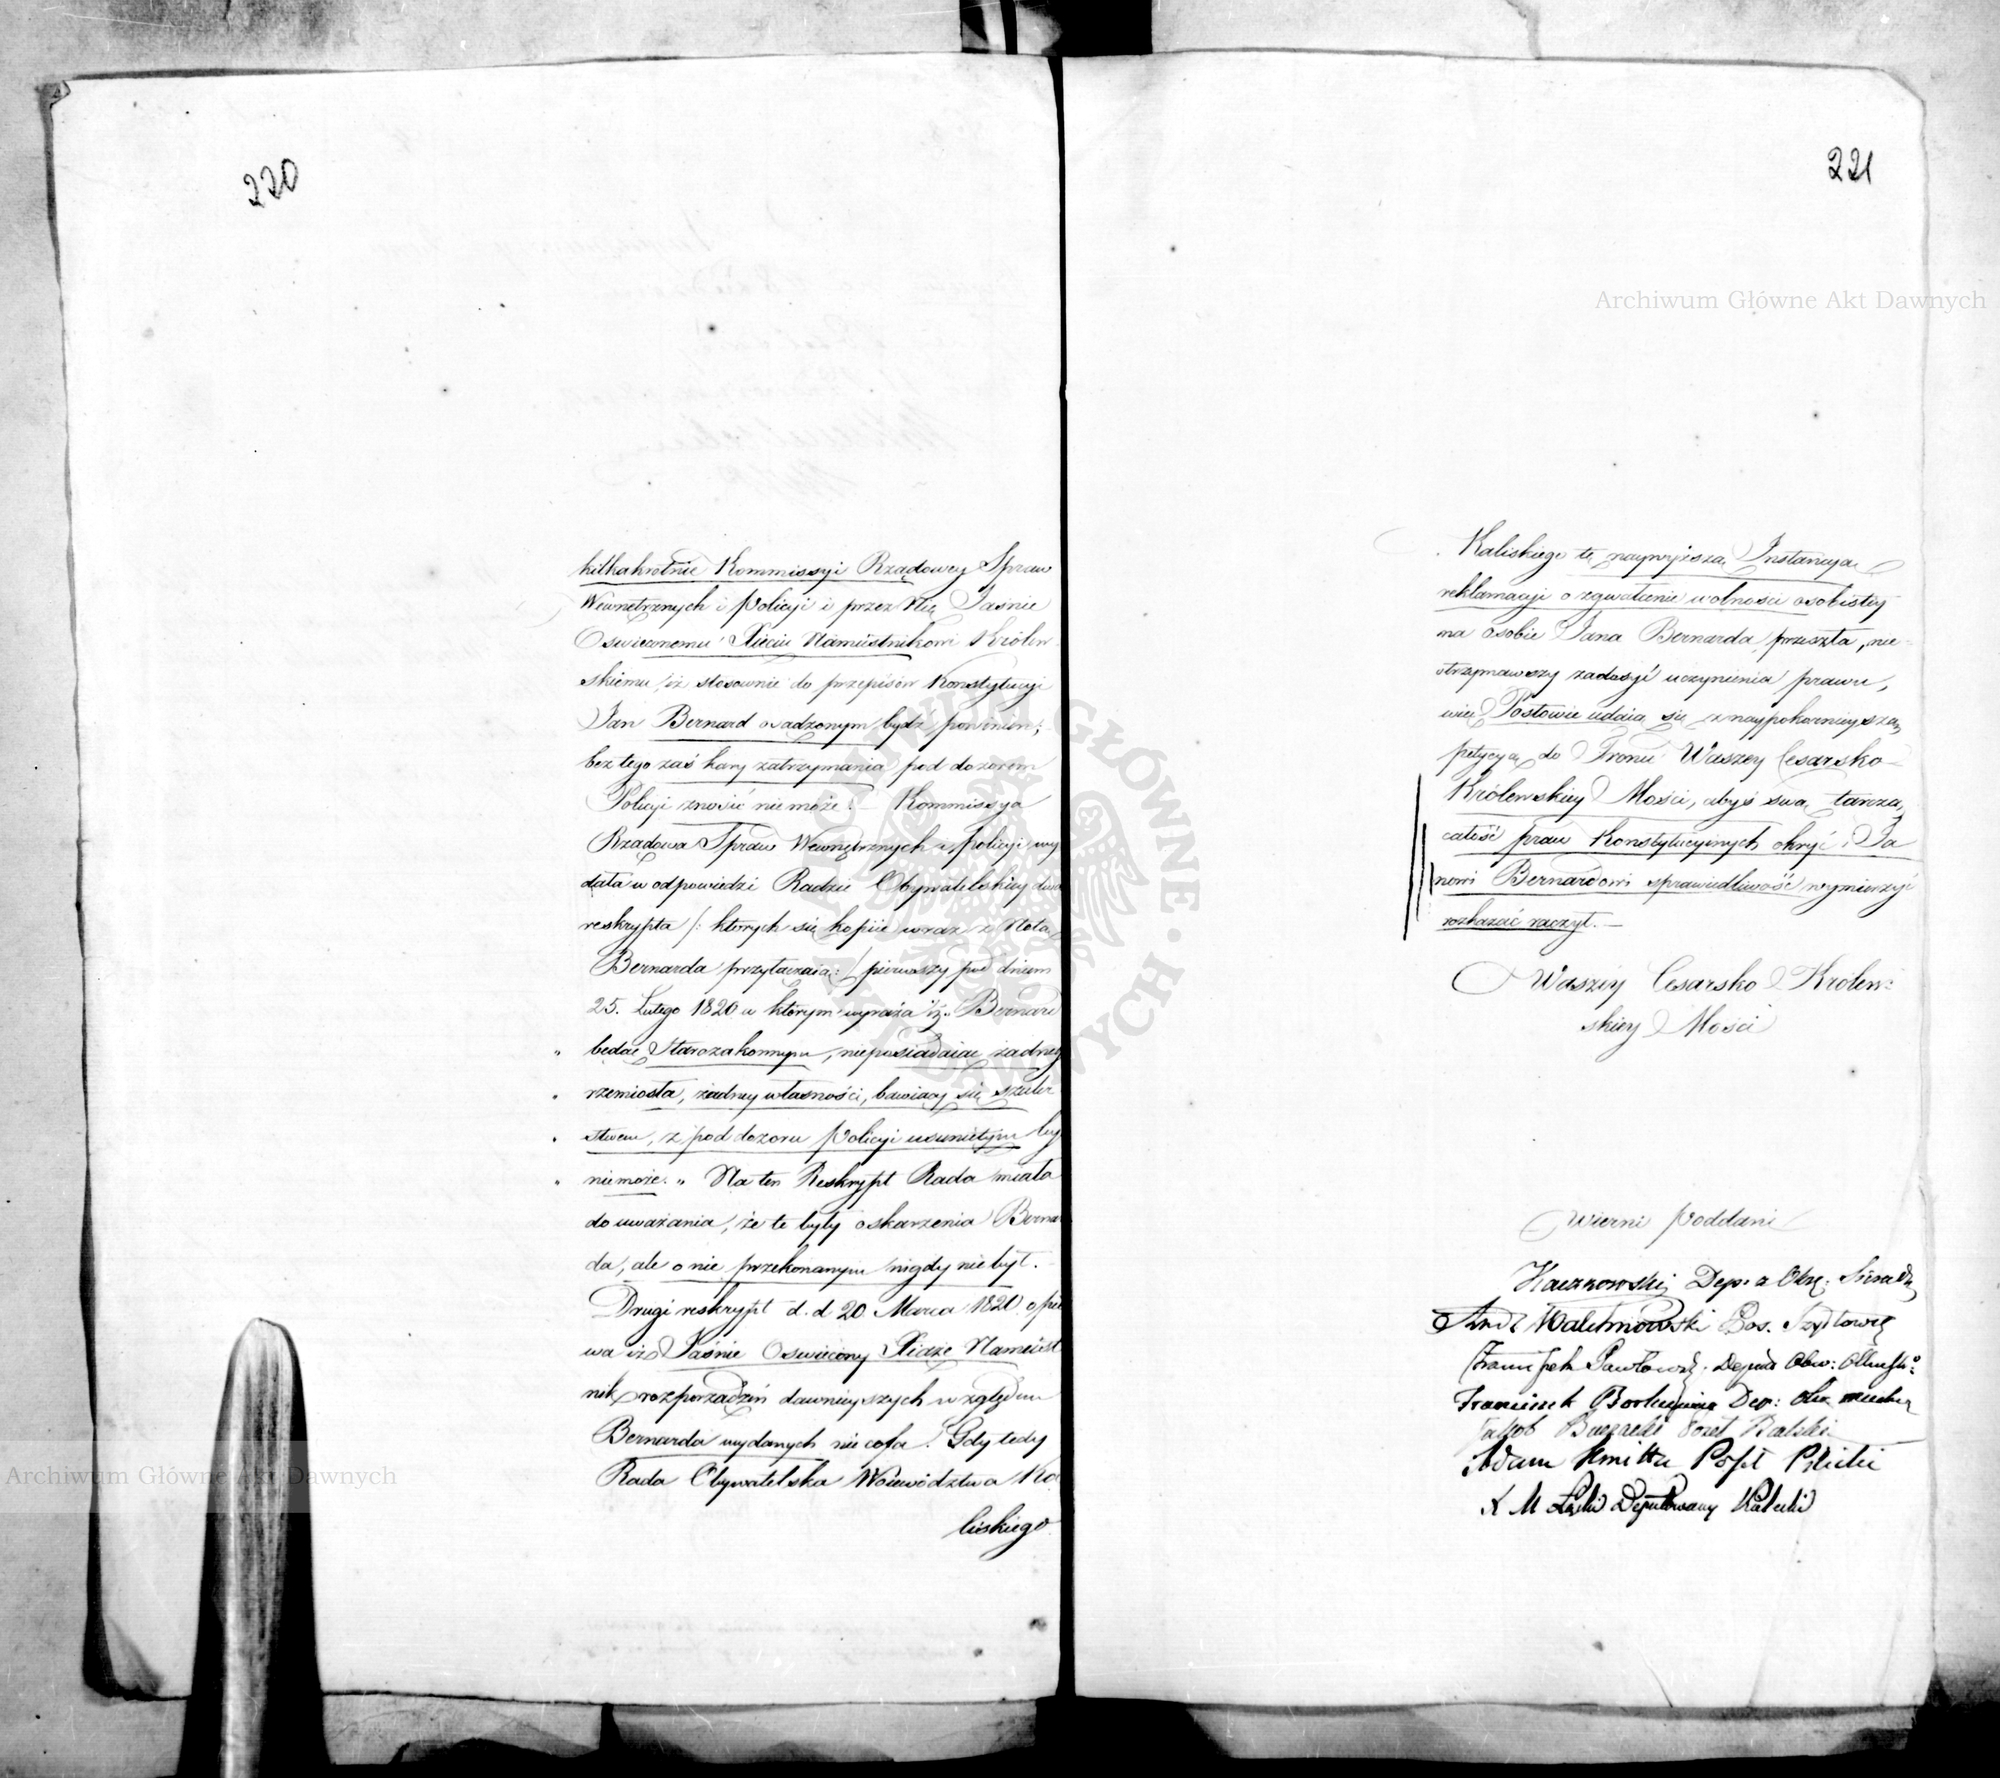 220
kilkakrotnie Kommissyi Rządowey Spraw
Wewnętrznych i Policyi i przez Nię Jaśnie
Oswieconemu Xięciu Namiestnikowi Królew
skiemu, iż stosownie do przepisów Konstytucyi
Jan Bernard osądzonym bydź powinien;
bez tego zaś kary zatrzymania pod dozorem
Policyi znosić nie może. Kommissya
Rządowa Spraw Wewnętrznych i Policyi wy
dała w odpowiedzi Radzie Obywatelskiey dwa
reskrypta /: których się kopiie wraz z Notą
Bernarda przytaczaią :/ pierwszy pod dniem
25. Lutego 1820 w którym wyraża iż „ Bernard
„ będąc Starozakonnym, nieposiadaiąc żadnego
„ rzemiosła, żadney własności, bawiący się szuler
„ stwem, z pod dozoru Policyi usuniętym by
„ niemoże. „ Na ten Reskrypt Rada miała
do uważania, że te były oskarżenia Berna
da, ale o nie przekonanym nigdy nie był.
Drugi reskrypt d. d 20 Marca 1820. opie
wa iż Jaśnie Oswiecony Xiąże Namiest
nik rozporządzeń dawnieyszych względem
Bernarda wydanych nie cofa. Gdy tedy
Rada Obywatelska Woiewództwa Ka
liskiego
221
Archiwum Główne Akt Dawnych
Kaliskiego tę naywyższą Instancyą
reklamacyi o zgwałcenie wolności osobistey
na osobie Jana Bernarda przeszła, nie
otrzymawszy zadosyć uczynienia prawu,
więc Posłowie udaią się z naypokornieyszą
petycyą do Tronu Waszey Cesarsko
Królewskiey Mości, abyś swą tarczą
całość praw Konstytucyinych okryć i Ja
nowi Bernardowi sprawiedliwość wymierzyć
rozkazać raczył. —
Waszey Cesarsko Królew:
skiey Mości
Wierni Poddani
Kaczkowski Dep. z Okrę:
Pos. Szydłowie
Franciszek Dep: Obw:
Franciszek Dep: Obw
Jakób Poseł
Adam Kmitta Poseł Pilicki
Deputowany
Archiwum Główne Akt Dawnych
ARCHIWUM GŁÓWNE AKT DAWNYCH